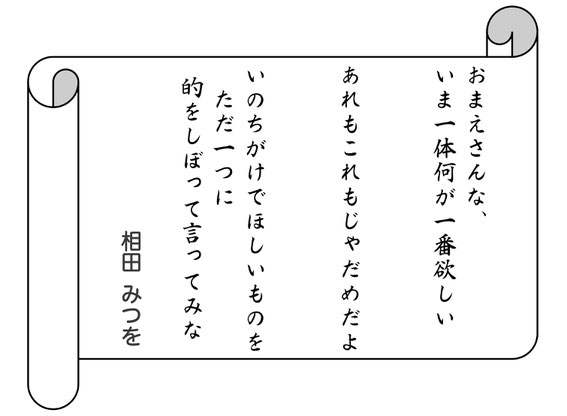 おまえさんな、
いま一体何が一番欲しい
あれもこれもじゃだめだよ
いのちがけでほしいものを
ただ一つに
的をしぼって言ってみな
相田 みつを